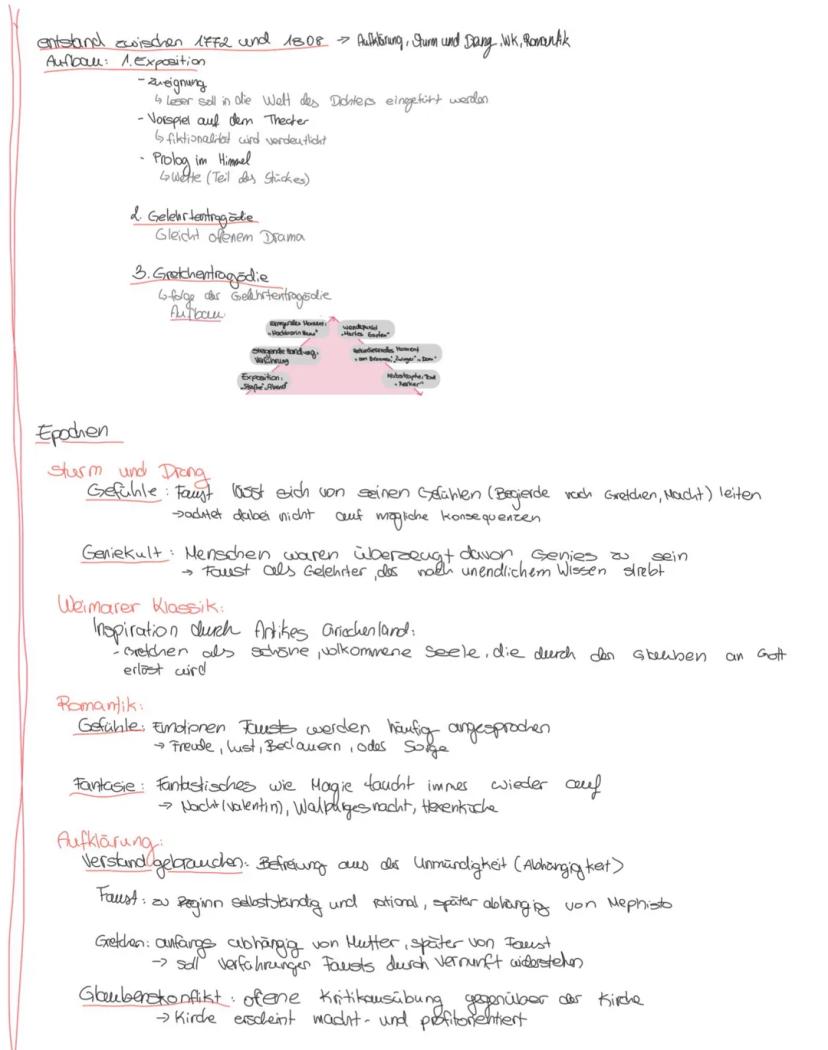 entstand zwischen 1772 und 1808 → Aufklärung, Sturm und Drang, WK, Romantik
Aufbau: 1. Exposition
- Zueignung
↳ Leser soll in die Welt des Dichters eingeführt werden
- Vorspiel auf dem Theater
↳ fiktionalität wird verdeutlicht
- Prolog im Himmel
↳ Wette (Teil des Stückes)
2. Gelehrtentragödie
Gleicht offenem Drama
3. Gretchentragödie
↳ folge der Gelehrtentragödie
Aufbau
erregendes Moment:
"Nachbarin Haus"
Wendepunkt
"Marthes Garten"
steigende Handlung:
Verführung
retardierendes Moment
"am Brunnen", "Zwinger", "Dom"
Exposition:
"Straße", "Abend"
Katastrophe: Tod
"Kerker"
Epochen
Sturm und Drang
Gefühle: Faust lässt sich von seinen Gefühlen (Begierde nach Gretchen, Macht) leiten
→ achtet dabei nicht auf mögliche konsequenzen
Geniekult: Menschen waren überzeugt davon, Genies zu sein
→ Faust als Gelehrter, der nach unendlichem Wissen strebt
Weimarer Klassik:
Inspiration durch Antikes Griechenland:
- Gretchen als schöne, volkommene Seele, die durch den Glauben an Gott
erlöst wird
Romantik:
Gefühle: Emotionen Fausts werden häufig angesprochen
→ Freude, Lust, Bedauern, oder Sorge
Fantasie: Fantastisches wie Magie taucht immer wieder auf
→ Nacht (Valentin), Walpurgesnacht, Hexenküche
Aufklärung:
Verstand gebrauchen: Befreiung aus der Unmündigkeit (Abhängigkeit)
Faust: zu Beginn selbstständig und rational, später abhängig von Mephisto
Gretchen: anfangs abhängig von Mutter, später von Faust
→ soll Verführungen Fausts durch Vernunft widerstehen
Glaubenskonflikt: ofene Kritikausübung gegenüber der Kirche
→ Kirche erscheint macht- und profitorientiert